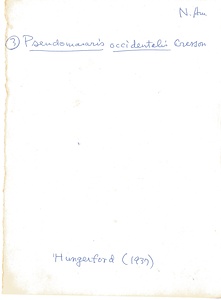 N. Am
③ Pseudomasaris occidentalis Cresson
Hungerford (1937)